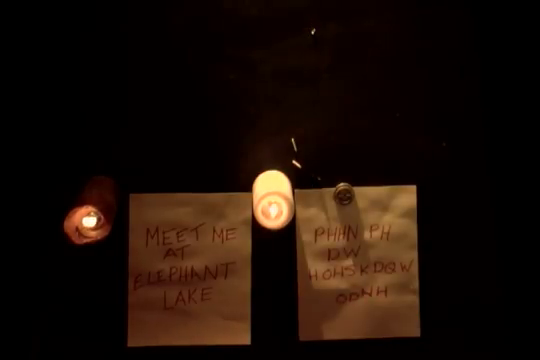 MEET ME
AT
ELEPHANT
LAKE
PHHN PH
DW
HOHSKDQW
ODNH